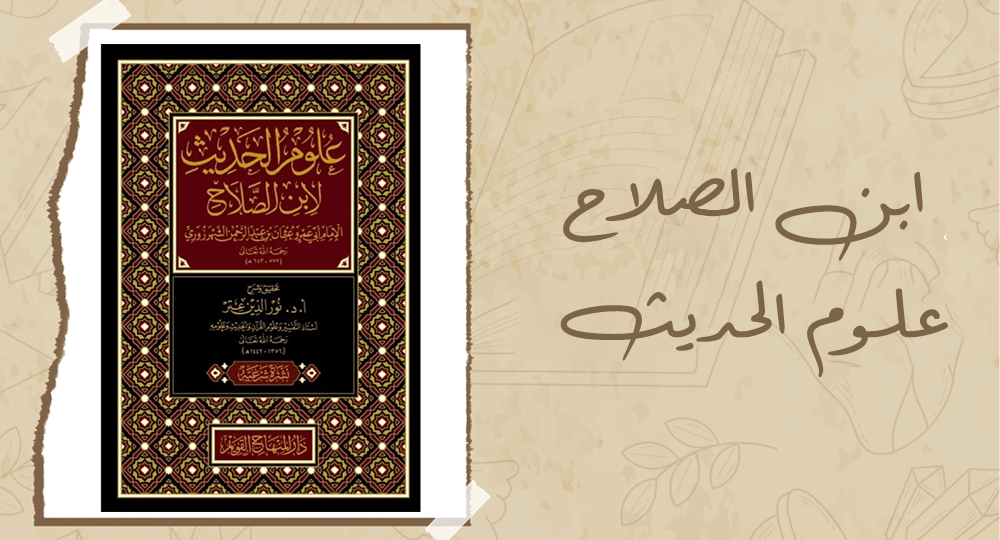 علوم الحديث
لابن الصلاح
الإمام أبي عمرو عثمان بن عبد الرحمن الشهرزوري
رحمه الله تعالى
(٥٧٧ - ٦٤٣ هـ)
تحقيق وشرح
أ.د. نور الدين عتر
أستاذ التفسير وعلوم القرآن والحديث وعلومه
رحمه الله تعالى
(١٣٥٦ - ١٤٤٢ هـ)
نشرة شرعية
دار المنهاج القويم
ابن الصلاح
علوم الحديث